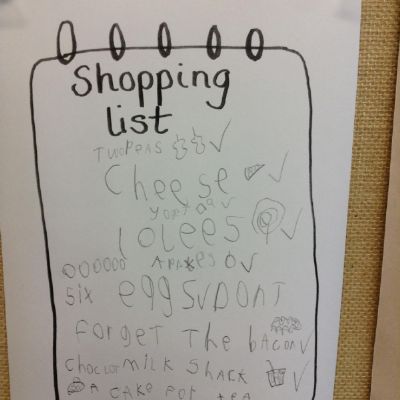 Shopping
list
Two Peas
Cheese
lolees
six eggs Dont
Forget The bacon
choclot milk shack
A cake for tea